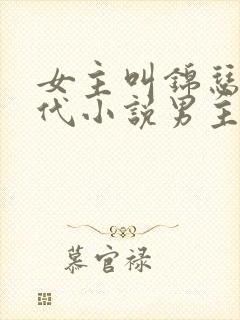 女主叫锦瑟
代小说男主
慕官禄